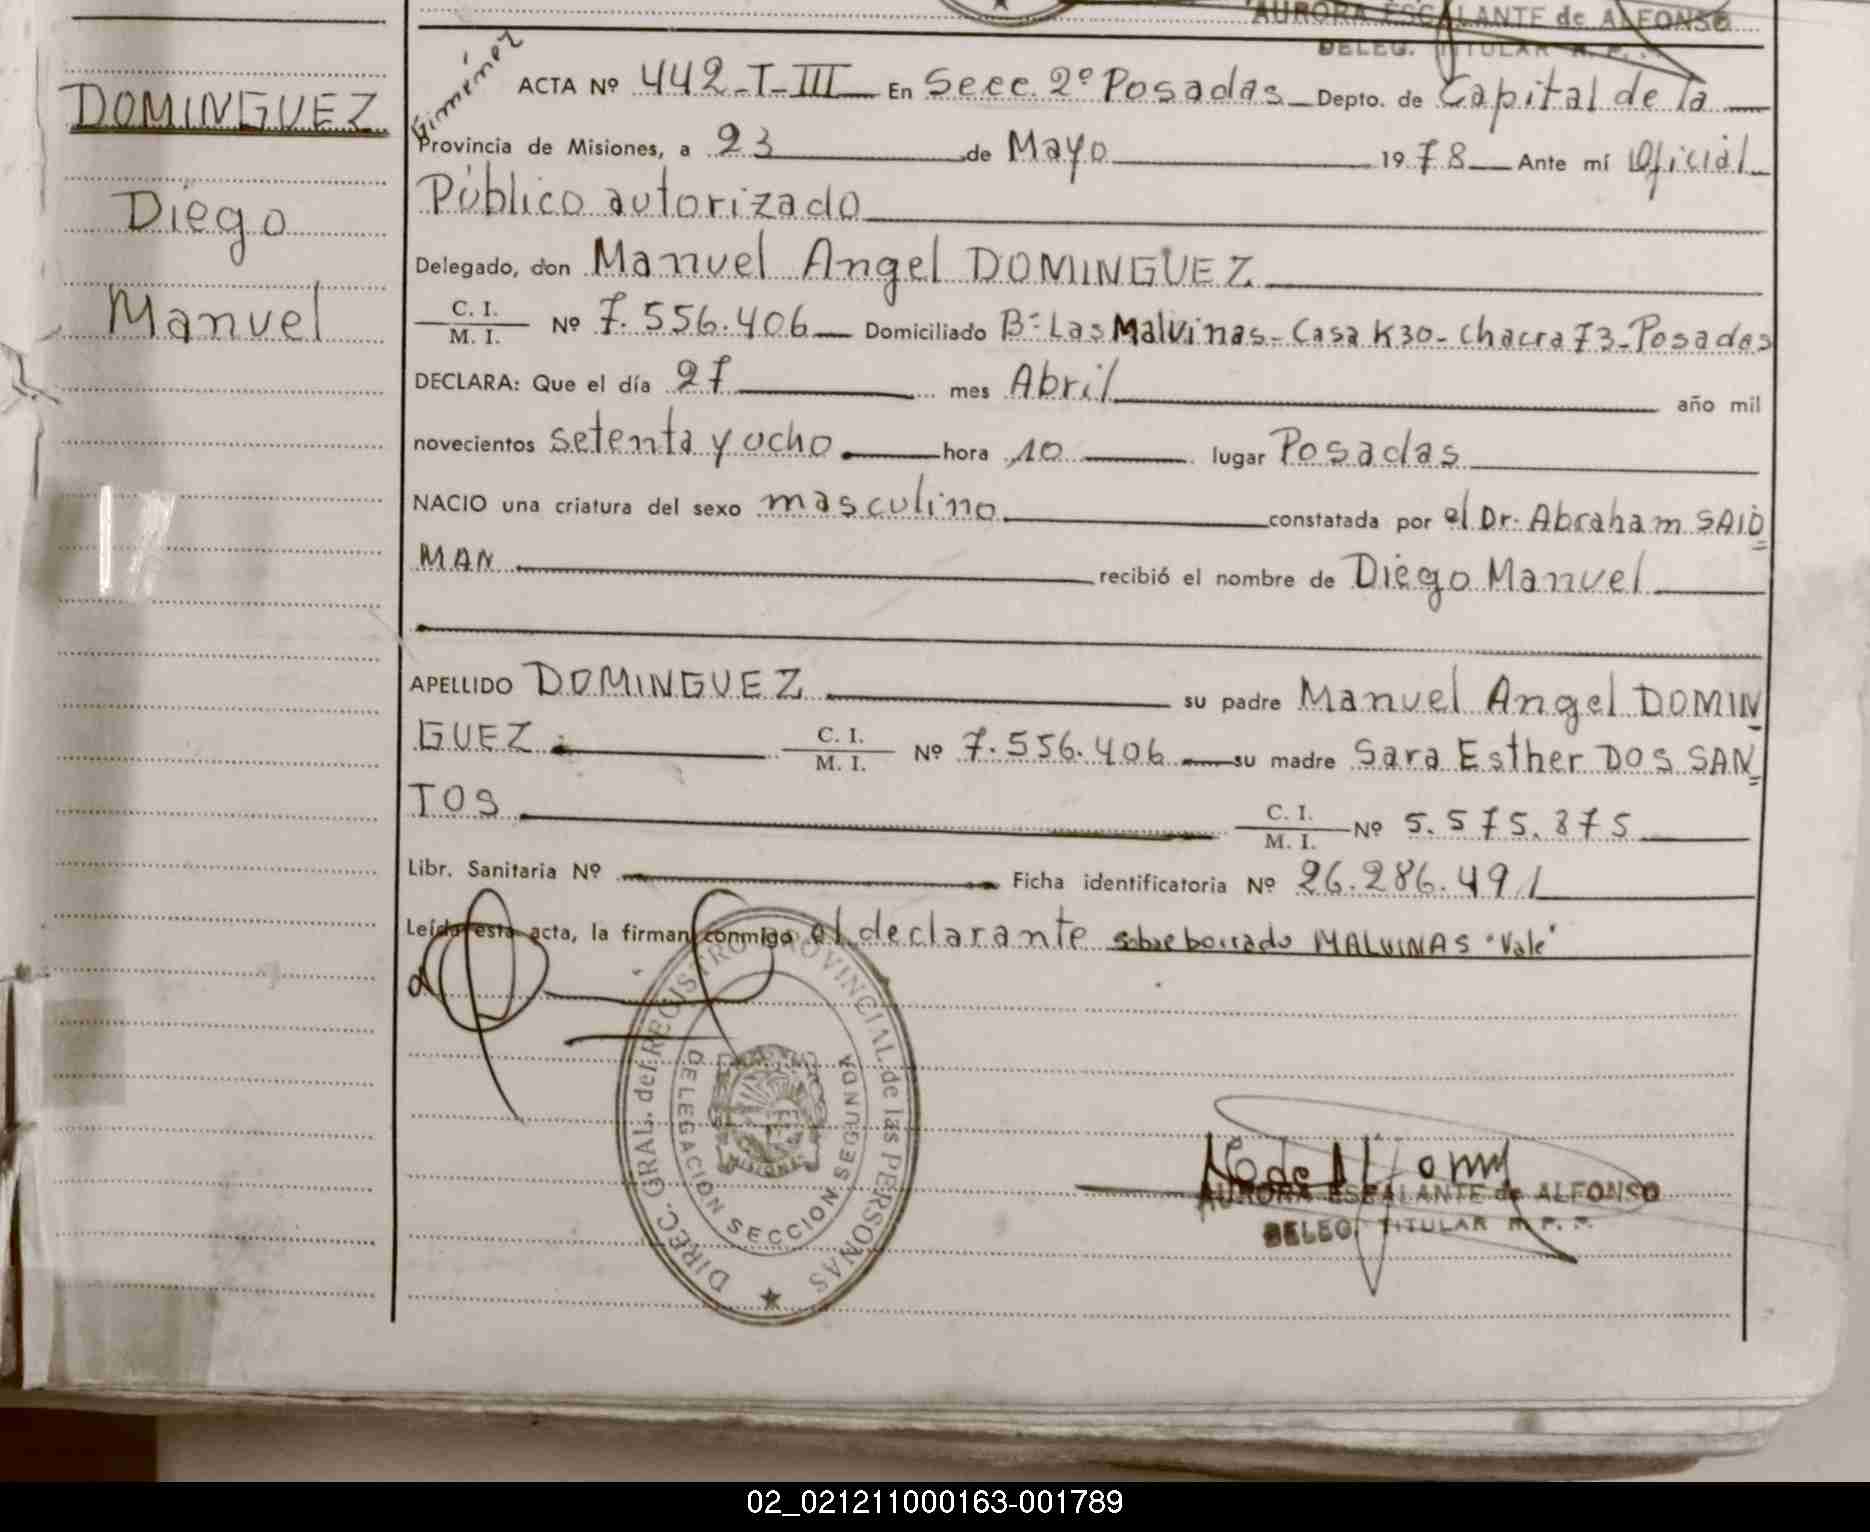 AURORA ESCALANTE de ALFONSO
DELEG. TITULAR R. P. P.
Giménez
DOMINGUEZ
Diego
Manuel
ACTA Nº 442-T-III En Secc. 2º Posadas Depto. de Capital de la
Provincia de Misiones, a 23 de Mayo 1978 Ante mí Oficial
Público autorizado
Delegado, don Manuel Angel DOMINGUEZ
C. I.
M. I. Nº 7.556.406 Domiciliado Bº Las Malvinas - Casa K30 - Chacra 73 - Posadas
DECLARA: Que el día 27 mes Abril año mil
novecientos setenta y ocho hora 10 lugar Posadas
NACIO una criatura del sexo masculino constatada por el Dr. Abraham SAID
MAN recibió el nombre de Diego Manuel
APELLIDO DOMINGUEZ su padre Manuel Angel DOMIN
GUEZ C. I. M. I. Nº 7.556.406 su madre Sara Esther DOS SAN
TOS C. I. M. I. Nº 5.575.875
Libr. Sanitaria Nº Ficha identificatoria Nº 26.286.491
Leída esta acta, la firman conmigo el declarante sobre borrado MALVINAS "Vale"
DIREC. GRAL. del REGISTRO PROVINCIAL de las PERSONAS
DELEGACION SECCION SEGUNDA
MISIONES
AURORA ESCALANTE de ALFONSO
DELEG. TITULAR R. P. P.
02_021211000163-001789